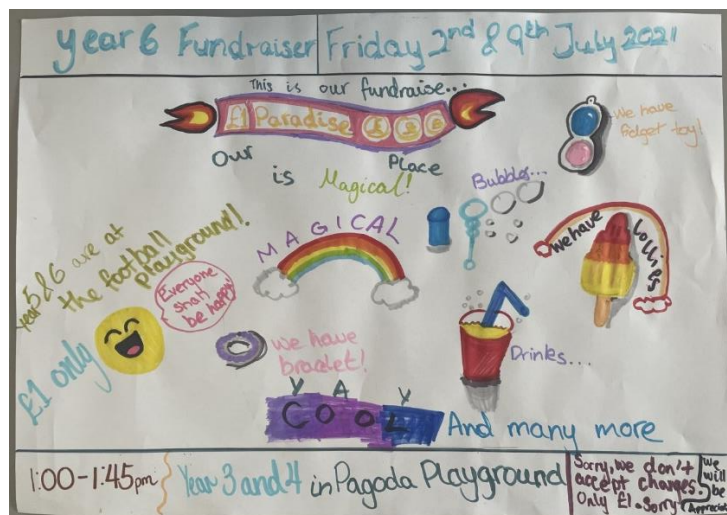 Year 6 Fundraiser Friday 2nd & 9th July 2021
This is our fundraise...
£1 Paradise
Our Place
is Magical!
We have
fidget toy!
Bubbles...
we have Lollies
MAGICAL
Year 5 & 6 are at
the football
playground!
Everyone
shall
be happy
£1 only
we have
braclet!
Drinks...
Y A Y
COOL
And many more
1:00-1:45pm
Year 3 and 4 in Pagoda Playground
Sorry, we don't
accept changes.
Only £1. Sorry
we
will
be
Apprecia